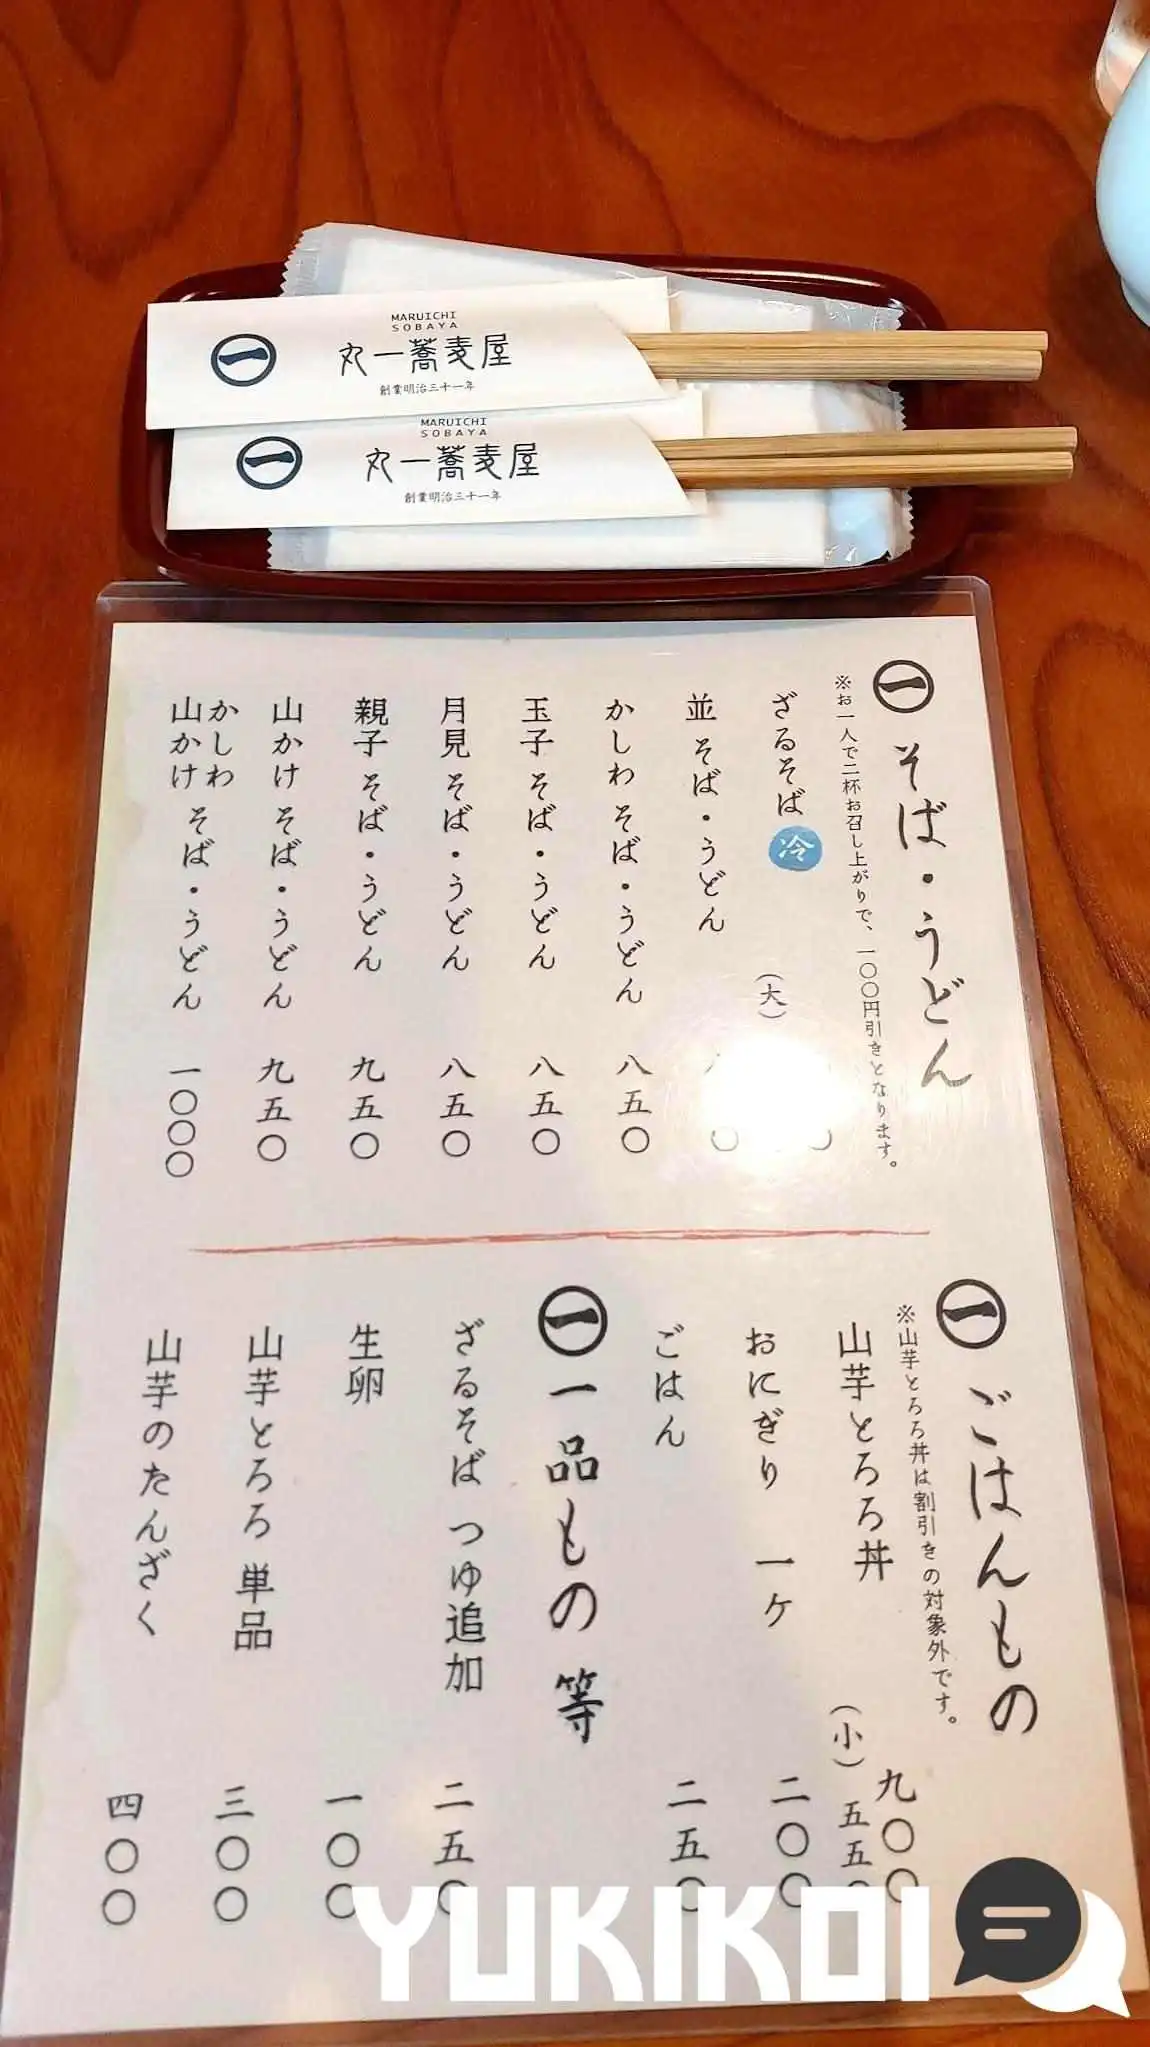 MARUICHI
SOBAYA
一 丸一蕎麦屋
創業明治三十一年
MARUICHI
SOBAYA
一 丸一蕎麦屋
創業明治三十一年
一 そば・うどん
※お一人で二杯お召し上がりで、一〇〇円引きとなります。
ざるそば 冷
(大)
並 そば・うどん
かしわ そば・うどん 八五〇
玉子 そば・うどん 八五〇
月見 そば・うどん 八五〇
親子 そば・うどん 九五〇
山かけ そば・うどん 九五〇
かしわ
山かけ そば・うどん 一〇〇〇
一 ごはんもの
※山芋とろろ丼は割引きの対象外です。
山芋とろろ丼 九〇〇
(小) 五五〇
おにぎり 一ケ 二〇〇
ごはん 二五〇
一 一品もの 等
ざるそば つゆ追加 二五〇
生卵 一〇〇
山芋とろろ 単品 三〇〇
山芋のたんざく 四〇〇
YUKIKOI